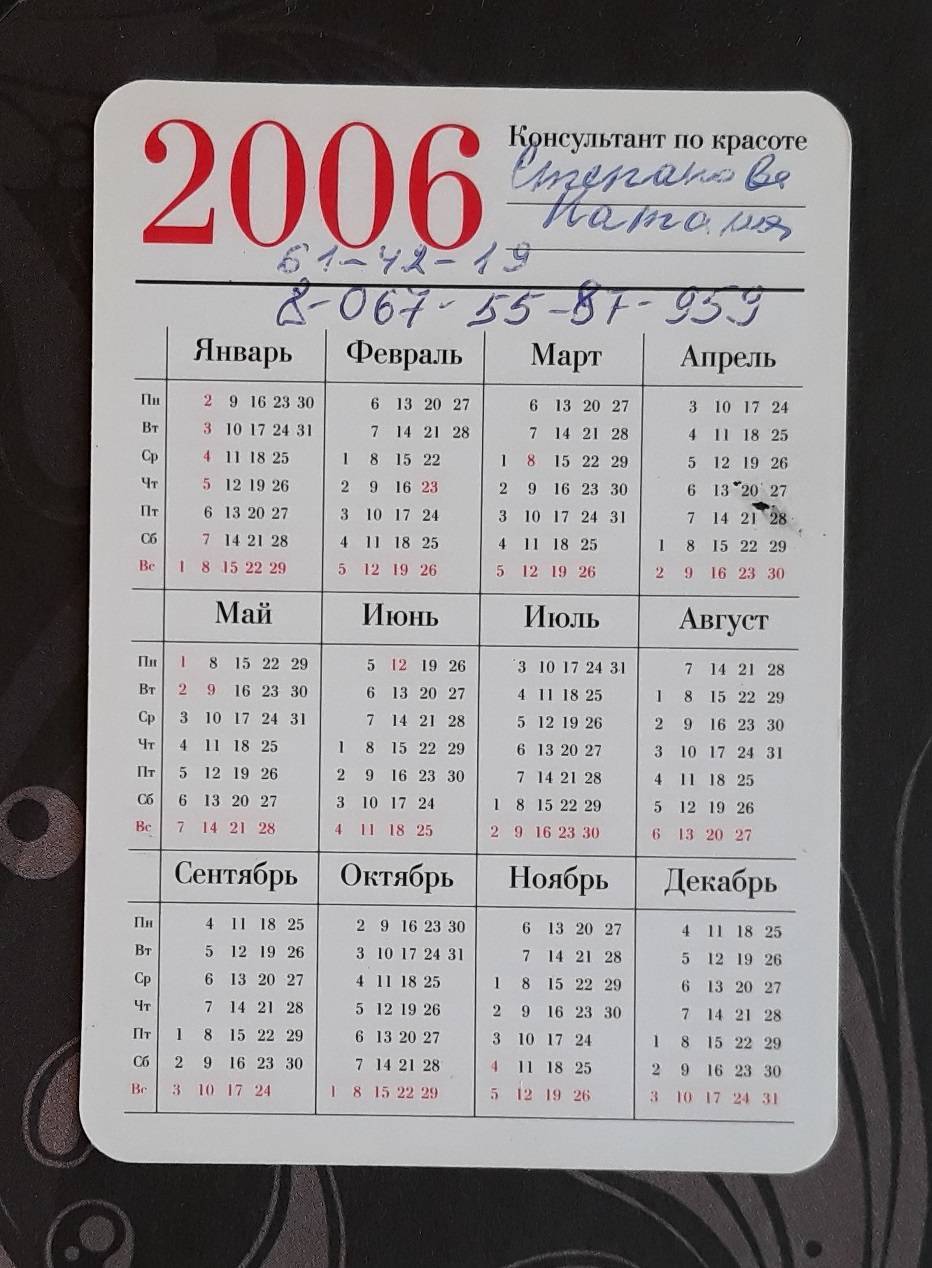 2006
Консультант по красоте
Степанова
Наталия
61-42-19
8-067-55-87-959
Январь Февраль Март Апрель
Пн 2 9 16 23 30 6 13 20 27 6 13 20 27 3 10 17 24
Вт 3 10 17 24 31 7 14 21 28 7 14 21 28 4 11 18 25
Ср 4 11 18 25 1 8 15 22 1 8 15 22 29 5 12 19 26
Чт 5 12 19 26 2 9 16 23 2 9 16 23 30 6 13 20 27
Пт 6 13 20 27 3 10 17 24 3 10 17 24 31 7 14 21 28
Сб 7 14 21 28 4 11 18 25 4 11 18 25 1 8 15 22 29
Вс 1 8 15 22 29 5 12 19 26 5 12 19 26 2 9 16 23 30
Май Июнь Июль Август
Пн 1 8 15 22 29 5 12 19 26 3 10 17 24 31 7 14 21 28
Вт 2 9 16 23 30 6 13 20 27 4 11 18 25 1 8 15 22 29
Ср 3 10 17 24 31 7 14 21 28 5 12 19 26 2 9 16 23 30
Чт 4 11 18 25 1 8 15 22 29 6 13 20 27 3 10 17 24 31
Пт 5 12 19 26 2 9 16 23 30 7 14 21 28 4 11 18 25
Сб 6 13 20 27 3 10 17 24 1 8 15 22 29 5 12 19 26
Вс 7 14 21 28 4 11 18 25 2 9 16 23 30 6 13 20 27
Сентябрь Октябрь Ноябрь Декабрь
Пн 4 11 18 25 2 9 16 23 30 6 13 20 27 4 11 18 25
Вт 5 12 19 26 3 10 17 24 31 7 14 21 28 5 12 19 26
Ср 6 13 20 27 4 11 18 25 1 8 15 22 29 6 13 20 27
Чт 7 14 21 28 5 12 19 26 2 9 16 23 30 7 14 21 28
Пт 1 8 15 22 29 6 13 20 27 3 10 17 24 1 8 15 22 29
Сб 2 9 16 23 30 7 14 21 28 4 11 18 25 2 9 16 23 30
Вс 3 10 17 24 1 8 15 22 29 5 12 19 26 3 10 17 24 31